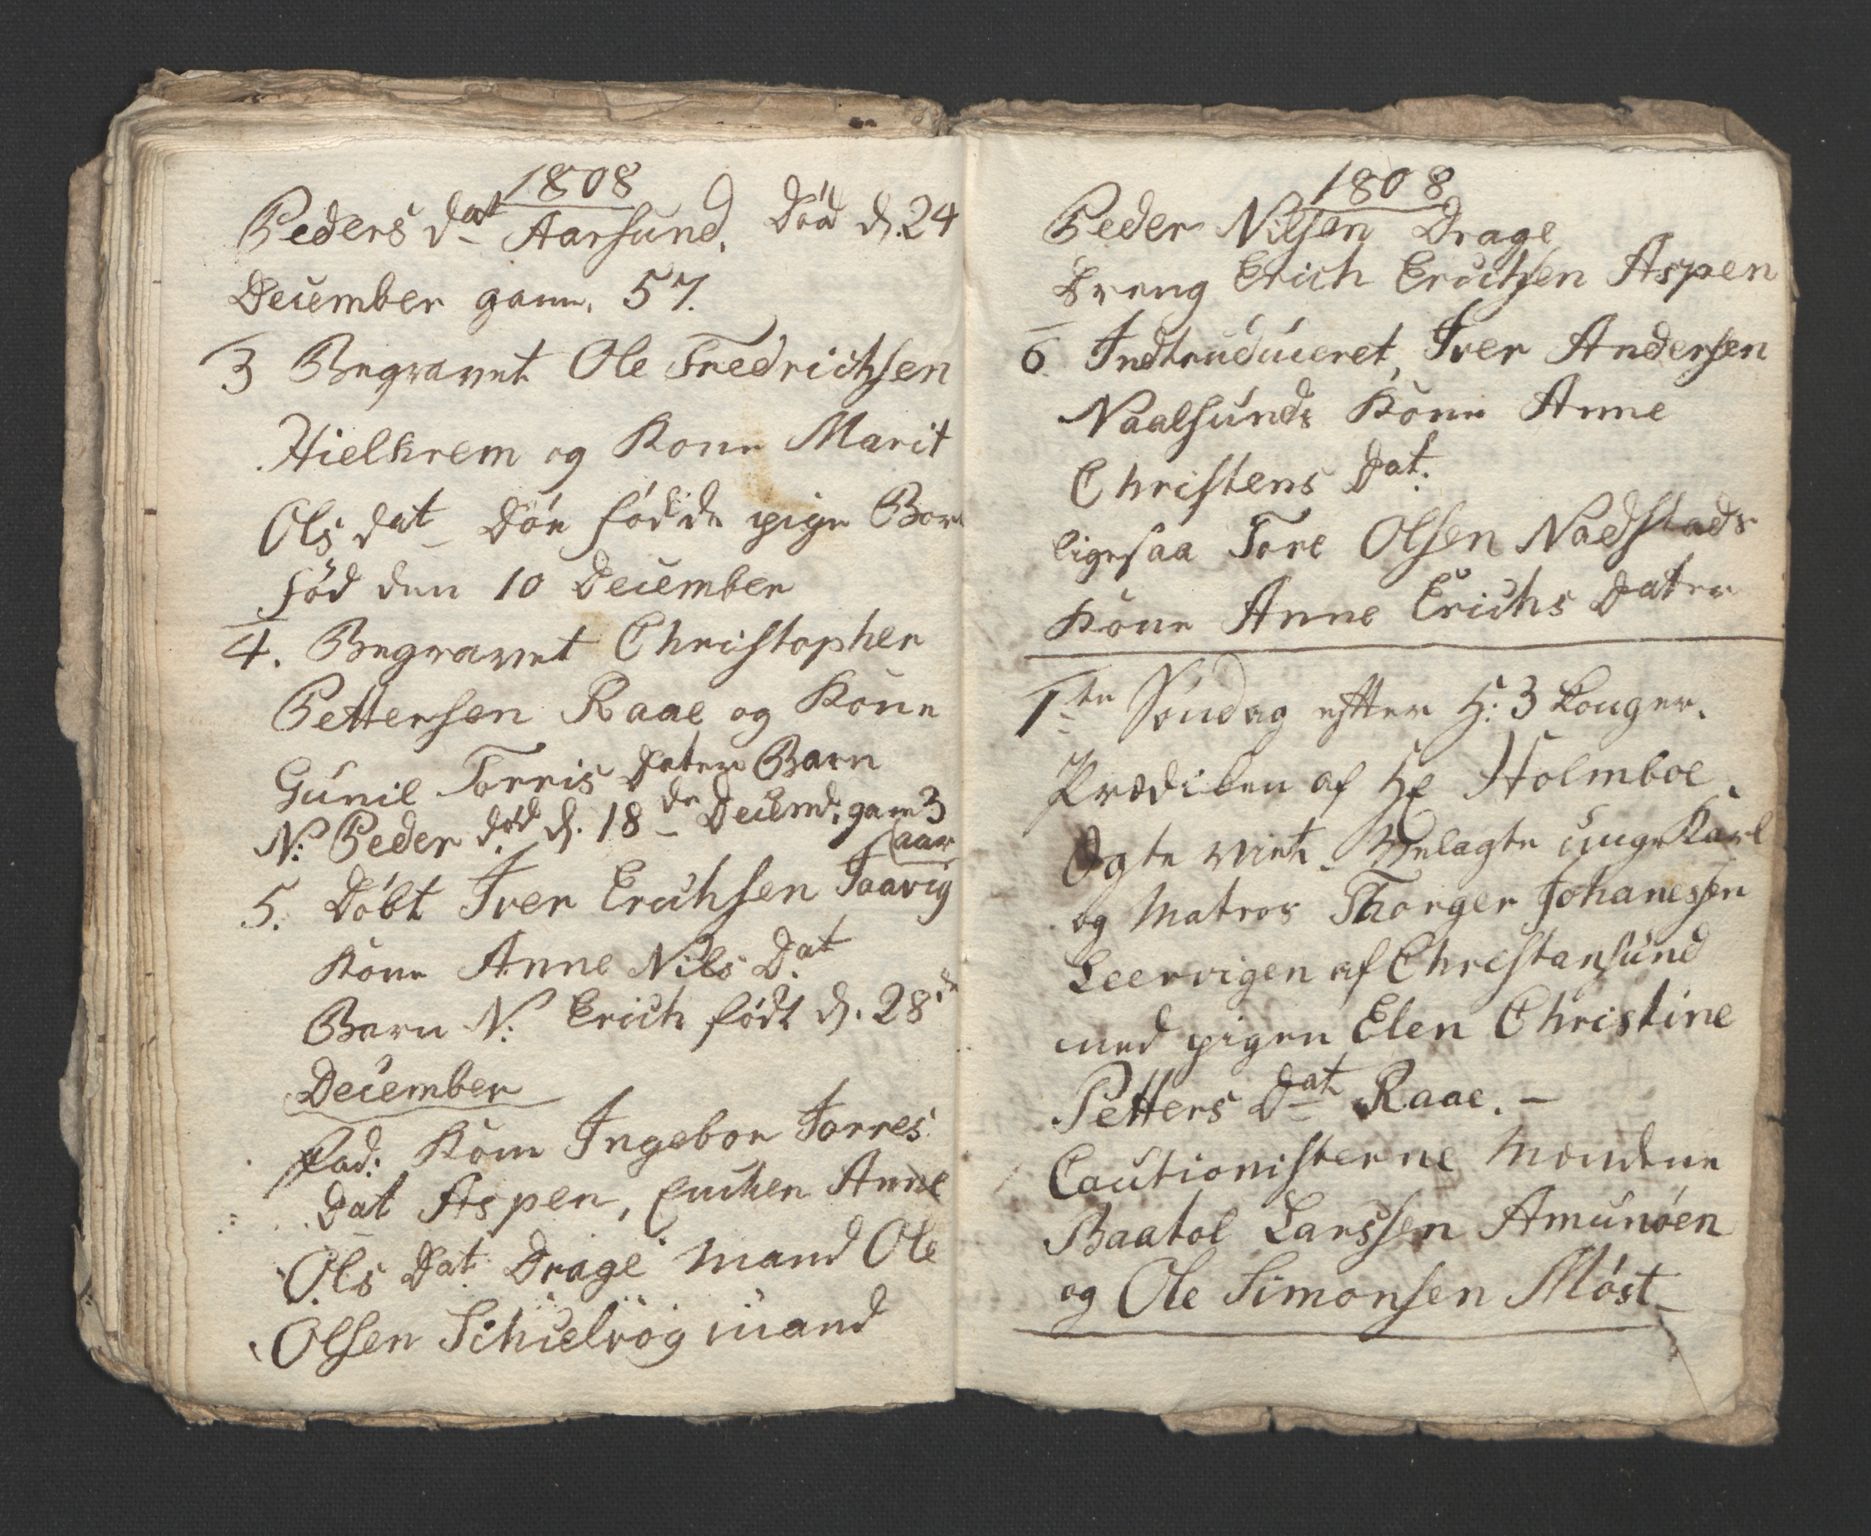 1808
Peders dat Aarsund, Död d. 24
December gam. 57.
3 Begravet Ole Fredrichsen
Hielkrem og Kone Marit
Ols dat Döe födde pige Bor
född den 10 December
4. Begravet Christopher
Pettersen Raae og Kone
Gunil Torris Dater Barn
N: Peder död d. 18de Decemb: gam 3
aar
5. Döbt Iver Erichsen Taavig
Kone Anne Nils Dat
Barn N: Erich födt d. 28de
December
Fad: Kone Ingebor Torres
Dat Aspen, Enchen Anne
Ols Dat Drage mand Ole
Olsen Schielvög mand
1808
Peder Nilsen Drage
Dreng Erich Erichsen Aspen
6 Indtruduceret, Iver Andersen
Naalsunds Kone Anne
Christens Dat:
ligesaa Tore Olsen Nadstads
Kone Anne Erichs Dater
1te Söndag efter H: 3 Konger.
Prædiken af Hr Holmboe.
Ægte viet Velagte unge Karl
og Matros Thorger Johanessen
Leervigen af Christansund
med pigen Elen Christine
Petters Dat Raae. –
Cautionisterne Mendene
Baatol Larssen Amunöen
og Ole Simonsen Möst